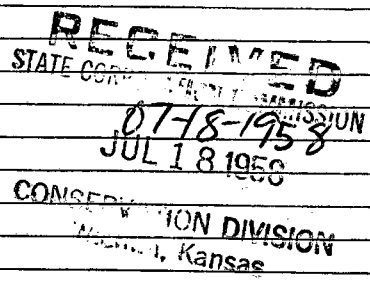 RECEIVED
STATE CORPORATION COMMISSION
07-18-1958
JUL 18 1958
CONSERVATION DIVISION
Wichita, Kansas